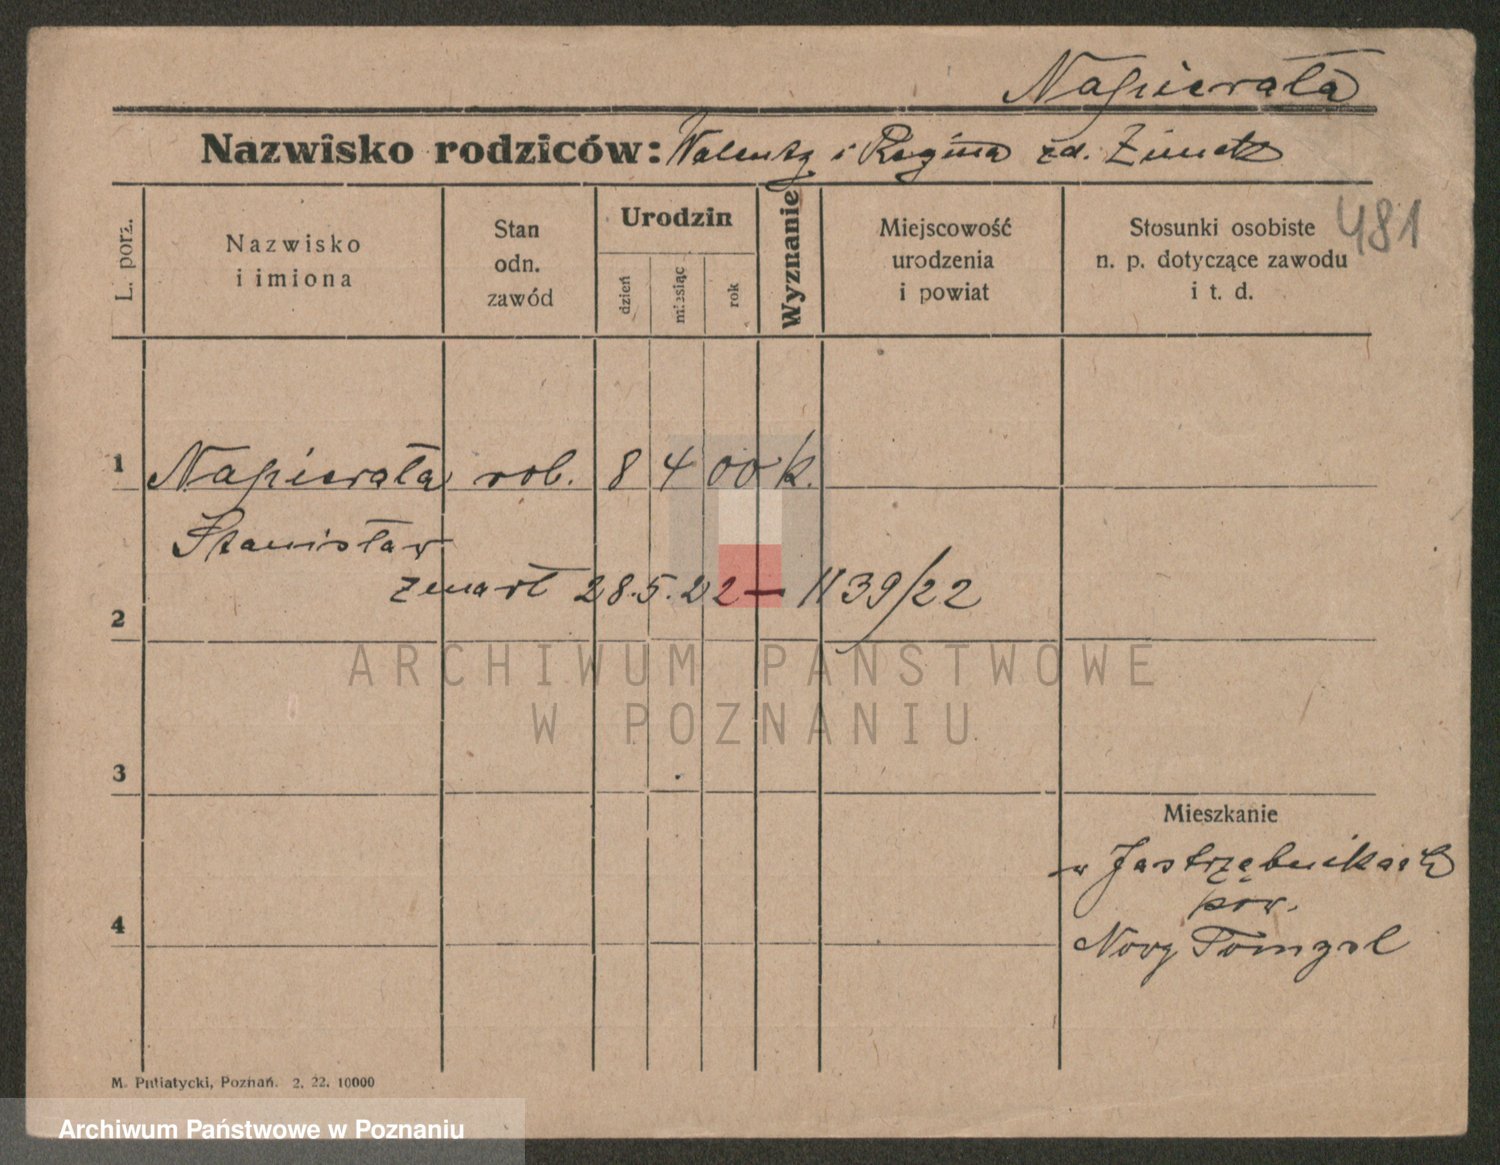 Napierała
Nazwisko rodziców: Walenty i Regina zd.
481
L. porz.
Nazwisko
i imiona
Stan
odn.
zawód
Urodzin
dzień
miesiąc
rok
Wyznanie
Miejscowość
urodzenia
i powiat
Stosunki osobiste
n. p. dotyczące zawodu
i t. d.
1 Napierała rob. 8 4 00 k.
Stanisław
zmarł 28.5.22 — 1139/22
2
ARCHIWUM PAŃSTWOWE
W POZNANIU
3
Mieszkanie
w Jastrzębnikach
pow.
4
Nowy Tomysl
M. Putiatycki, Poznań. 2. 22. 10000
Archiwum Państwowe w Poznaniu